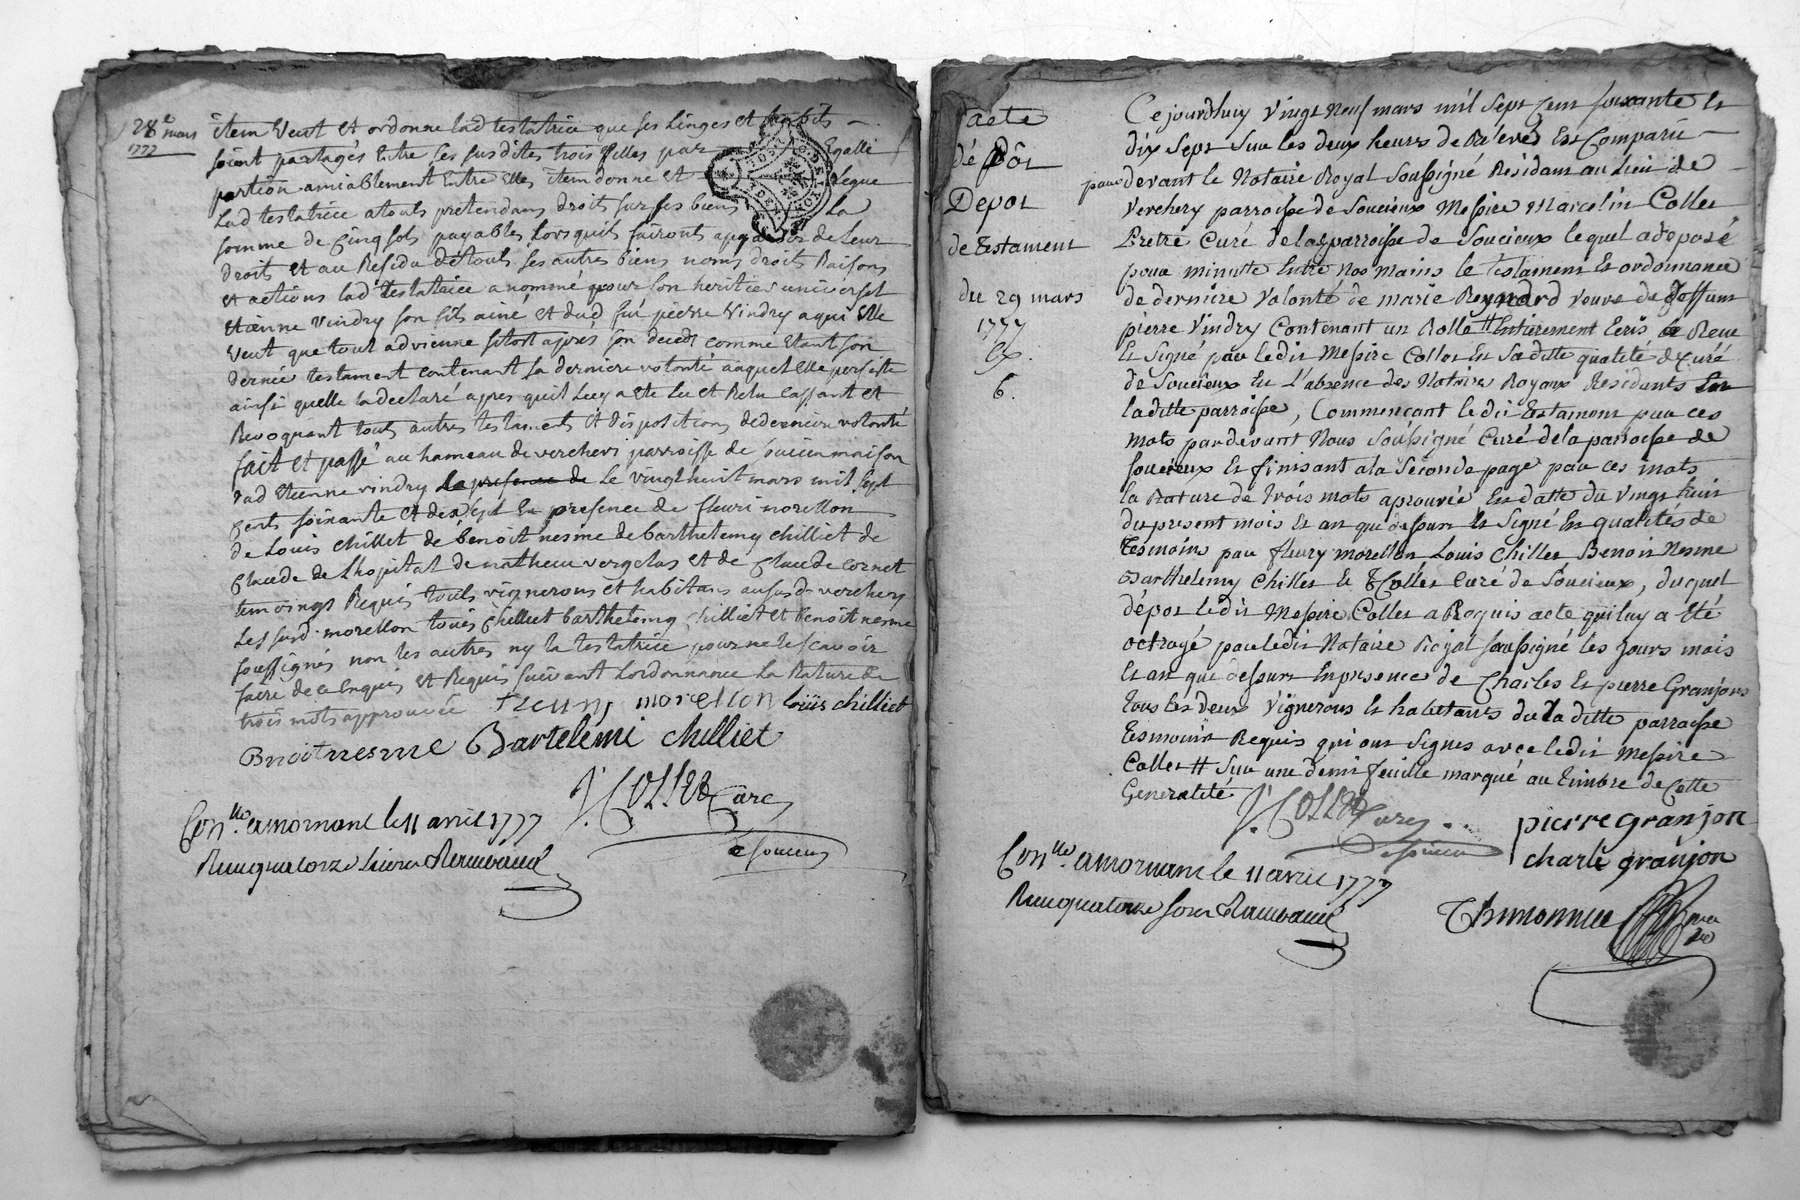 28e mars
1777
item veut et ordonne lad testatrice que ses linges et habits
soient partagés entre ses susdites trois filles par Egalle
portion amiablement entre elles, item donne et legue
Lad testatrice a touts pretendans droits sur ses biens La
somme de cinq sols payables lorsquils fairont de leur
droit et au Residu de touts ses autres biens noms droits Raisons
et actions lad testatrice a nommé pour son heritier universel
etienne vindry son fils ainé et dud feu pierre vindry a qui elle
veut que tout advienne sitost après son deceds comme etant son
dernier testament contenant sa derniere volonté auquel elle persiste
ainsi quelle la declaré apres quil Luy a ete Lu et Relu Cassant et
Revoquant touts autres testaments et dispositions de derniere volonté
fait et passé au hameau de vercheri parroisse de soucieu maison
dud Etienne vindry la presence de Le vingt huit mars mil sept
cents soixante et dix sept En presence de fleuri morellon
de Louis chilliet de benoit nesme de barthelemy chilliet de
Claude de Lhopital de matheu vergelas et de Claude cornet
temoings Requis touts vignerons et habitans aususd verchery
Les susd. morellon Louis chilliet barthelemy chilliet et benoit nesme
soussignés non les autres ny la testatrice pour ne le scavoir
faire de ce Enquis et Requis suivant Lordonnance La Rature de
trois mots approuvée fleury morellon louis chilliet
Benoit nesme Bartelemi chilliet
J. COLLET Curé
de soucieu
Con.lle a mornant le 11 avril 1777
Recu quatorze
acte
dé pôt
Depot
de Testament
du 29 mars
1777
Ex.
6.
Cejourdhuy vingt neuf mars mil sept cens soixante et
dix sept sur les deux heures de Relevée Est Comparu
pardevant le Notaire Royal soussigné Résidant au Lieu de
Verchery parroisse de Soucieux Messire Marcelin Collet
Prêtre Curé de lad parroisse de Soucieux lequel a deposé
pour minutte Entre nos mains le Testament Et ordonnance
de derniere volonté de marie Reynard veuve de deffunt
pierre Vindry Contenant un Rolle # Entierement Ecrit Receu
Et Signé par ledit Messire Collet En Saditte qualité de Curé
de Soucieux En L'absence des Notaires Royaux Residants En
laditte parroisse, Commençant ledit Testament par ces
mots pardevant Nous Soussigné Curé de la parroisse de
Soucieux Et finissant a la Seconde page par ces mots
la Rature de trois mots aprouvée En datte du vingt huit
du present mois Et an que dessus Et Signé En qualités de
Tesmoins par fleury morellon Louis Chillet Benoit Nesme
Barthelemy Chillet Et Collet Curé de Soucieux, duquel
dépot ledit Messire Collet a Requis acte qui luy a Eté
octroyé par ledit Notaire Royal soussigné les jours mois
Et an que dessus En presence de Charles Et pierre Granjons
tous les deux Vignerons Et habitants de la ditte parroisse
Tesmoins Requis qui ont Signés avec ledit Messire
Collet # Sur une demi feuille marqué au Timbre de Cette
Generalité
J. COLLET Curé
de soucieu
pierre granjon
charle granjon
Con.lle a mornant le 11 avril 1777
Recu quatorze
Thimonnier